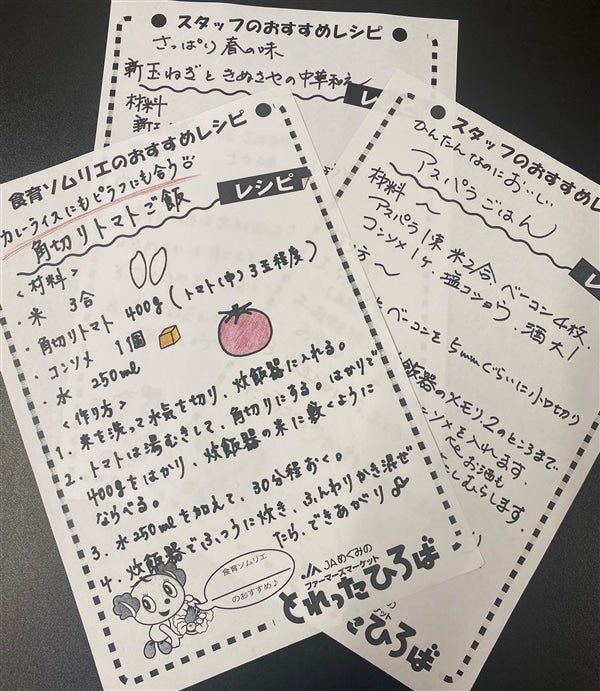 スタッフのおすすめレシピ
さっぱり春の味
新玉ねぎときぬさやの中華和え
レ
材料
新玉
食育ソムリエのおすすめレシピ
カレーライスにもピラフにも合う
レシピ
角切りトマトご飯
<材料>
・米 3合
・角切りトマト 400g(トマト(中)3玉程度)
・コンソメ 1個
・水 250ml
<作り方>
1. 米を洗って水気を切り、炊飯器に入れる。
2. トマトは湯むきして、角切りにする。はかりで
400gをはかり、炊飯器の米に敷くように
ならべる。
3. 水250mlを加えて、30分程おく。
4. 炊飯器でふつうに炊き、ふんわりかき混ぜ
たら、できあがり
食育ソムリエ
のおすすめ♪
JAめぐみの
ファーマーズマーケット
とれったひろば
スタッフのおすすめ
かんたんなのにおいしい
アスパラごはん
レ
材料〜
アスパラ1束 米2合、ベーコン4枚、
コンソメ1ケ 塩コショウ、酒大1
方〜
とベーコンを5mmぐらいに小口切り
飯器のメモリ2のところまで
ンソメを入れます。
お酒も
むらします。
の
ケット
ひろば